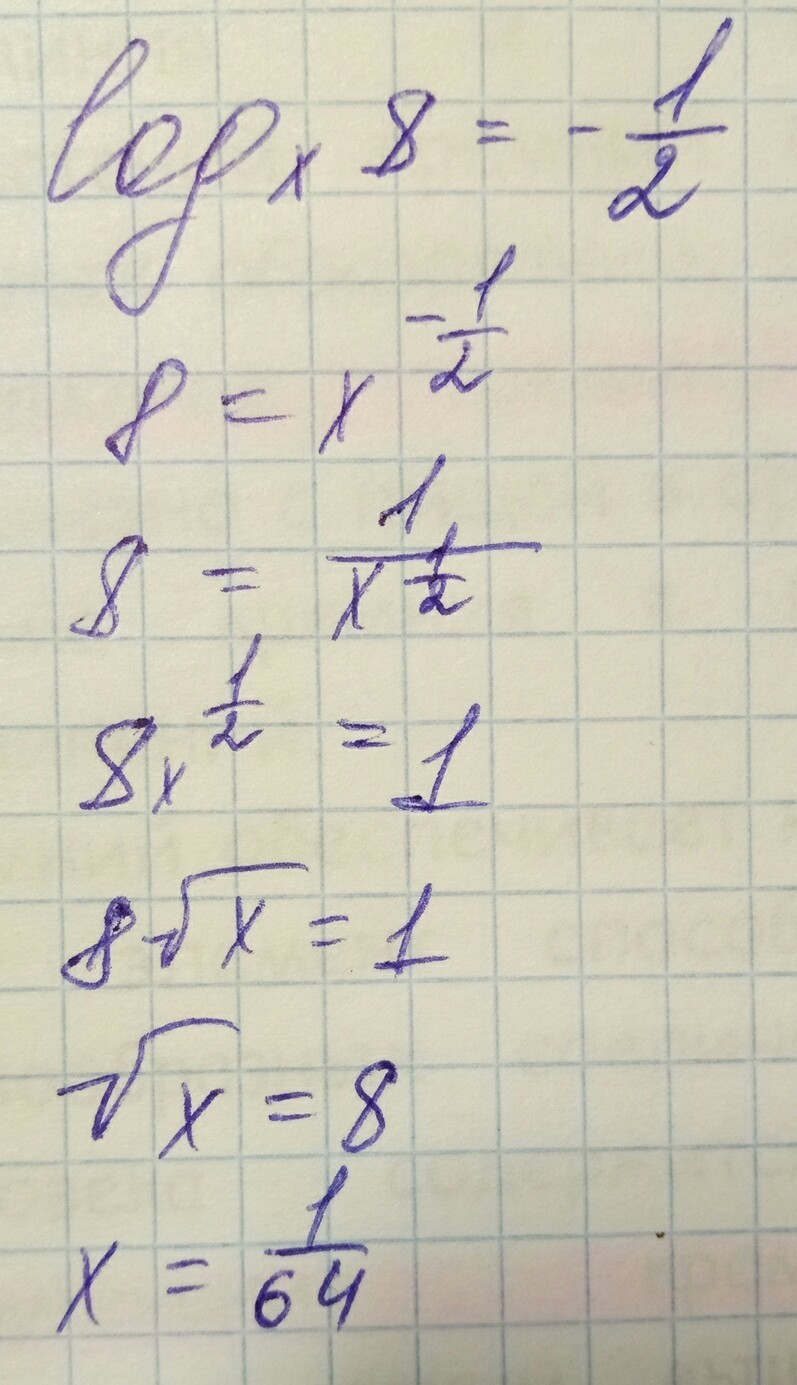 logₓ 8 = -1/2
8 = x^(-1/2)
8 = 1/x^(1/2)
8x^(1/2) = 1
8√x = 1
√x = 8
x = 1/64